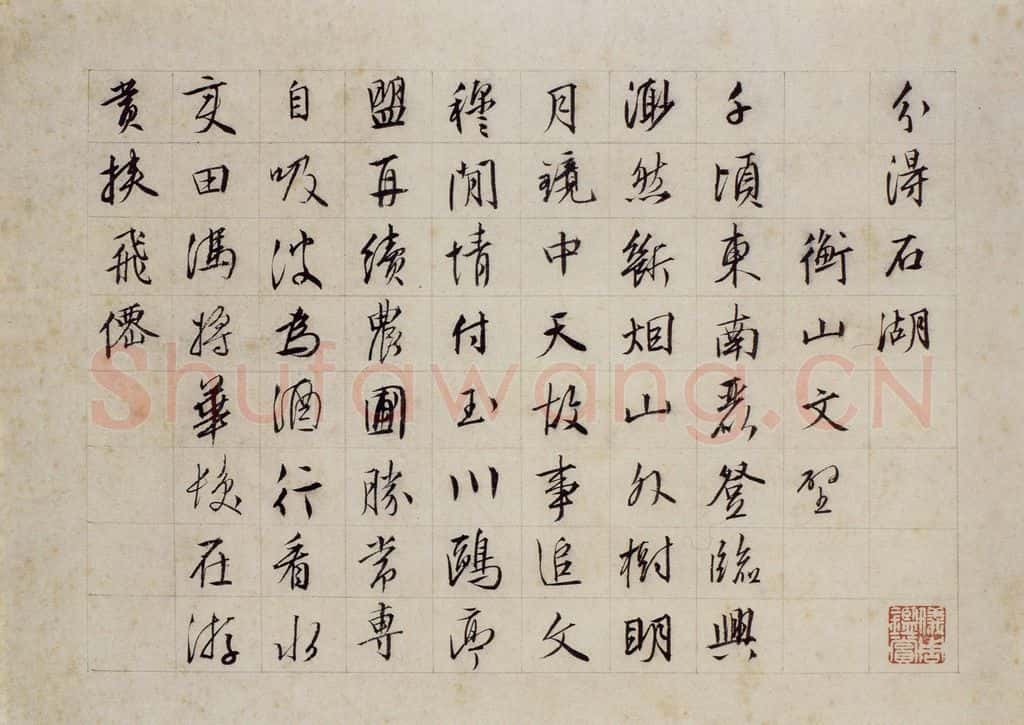 分得石湖
衡山文壁
千頃東南麗登臨興
渺然斷烟山外樹明
月鏡中天故事追文
穆閒情付玉川鷗亭
盟再續農圃勝常專
自吸波為酒行看水
变田馮將華在游
挾飛僊
Shufawang.CN